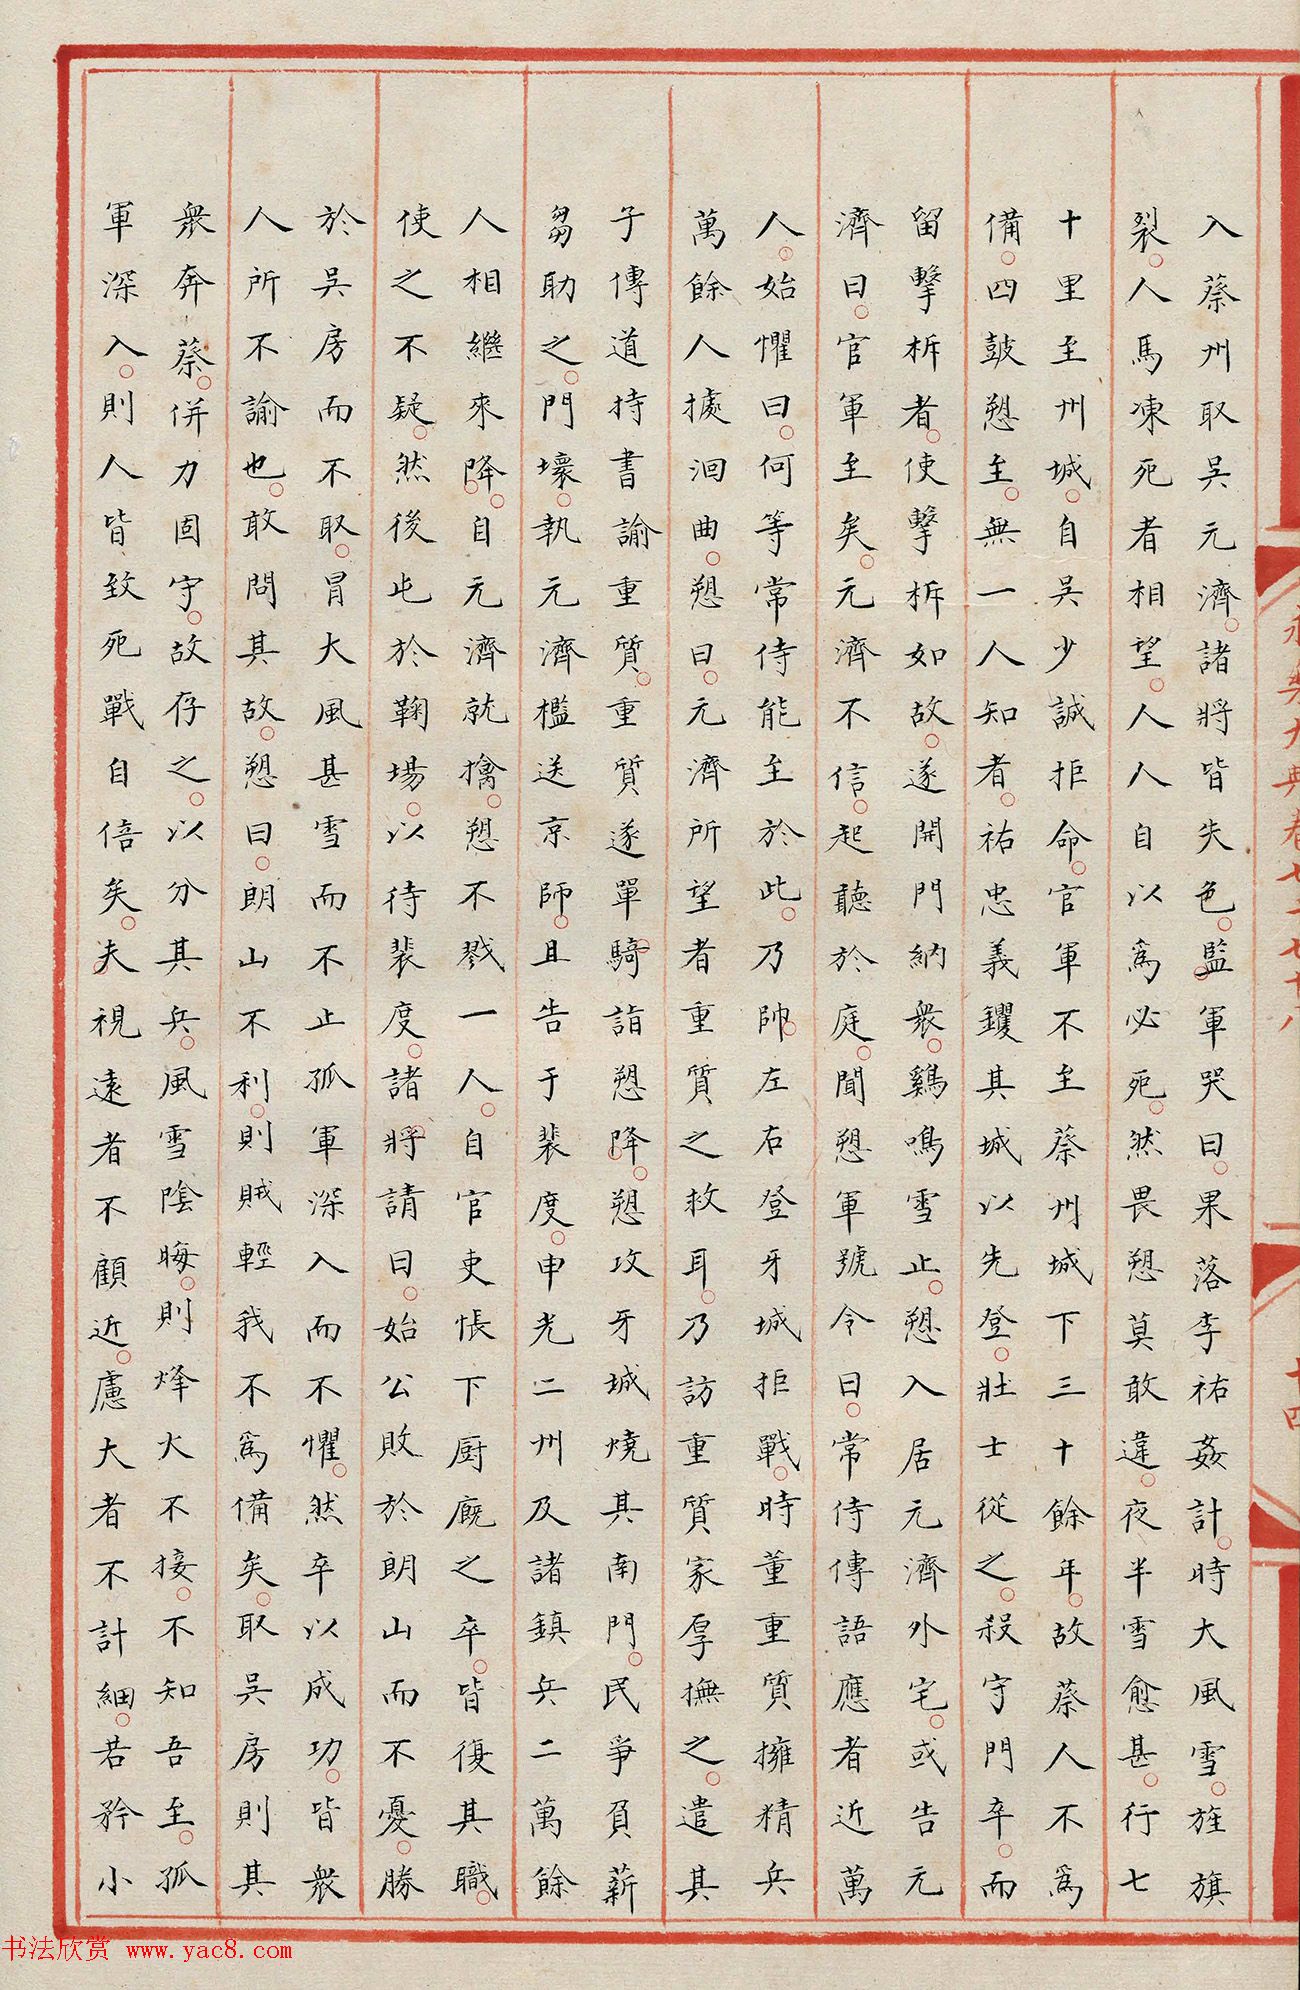 入蔡州取吳元濟。諸將皆失色。監軍哭曰。果落李祐姦計。時大風雪。旌旗
裂。人馬凍死者相望。人人自以為必死。然畏愬莫敢違。夜半雪愈甚。行七
十里至州城。自吳少誠拒命。官軍不至蔡州城下三十餘年。故蔡人不為
備。四鼓愬至。無一人知者。祐忠義钁其城以先登。壯士從之。殺守門卒。而
留擊柝者。使擊柝如故。遂開門納衆。鷄鳴雪止。愬入居元濟外宅。或告元
濟曰。官軍至矣。元濟不信。起聽於庭。聞愬軍號令曰。常侍傳語應者近萬
人。始懼曰。何等常侍能至於此。乃帥左右登牙城拒戰。時董重質擁精兵
萬餘人據洄曲。愬曰。元濟所望者重質之救耳。乃訪重質家厚撫之。遣其
子傳道持書諭重質。重質遂單騎詣愬降。愬攻牙城燒其南門。民爭負薪
芻助之。門壞。執元濟檻送京師。且告于裴度。申光二州及諸鎮兵二萬餘
人相繼來降。自元濟就擒。愬不戮一人。自官吏悵下厨廐之卒。皆復其職。
使之不疑。然後屯於鞠場。以待裴度。諸將請曰。始公敗於朗山而不憂。勝
於吳房而不取。冒大風甚雪而不止孤軍深入而不懼。然卒以成功。皆衆
人所不諭也。敢問其故。愬曰。朗山不利。則賊輕我不為備矣。取吳房則其
衆奔蔡。併力固守。故存之。以分其兵。風雪陰晦。則烽火不接。不知吾至。孤
軍深入。則人皆致死戰自倍矣。夫視遠者不顧近。慮大者不計細。若矜小
十四
书法欣赏 www.yac8.com